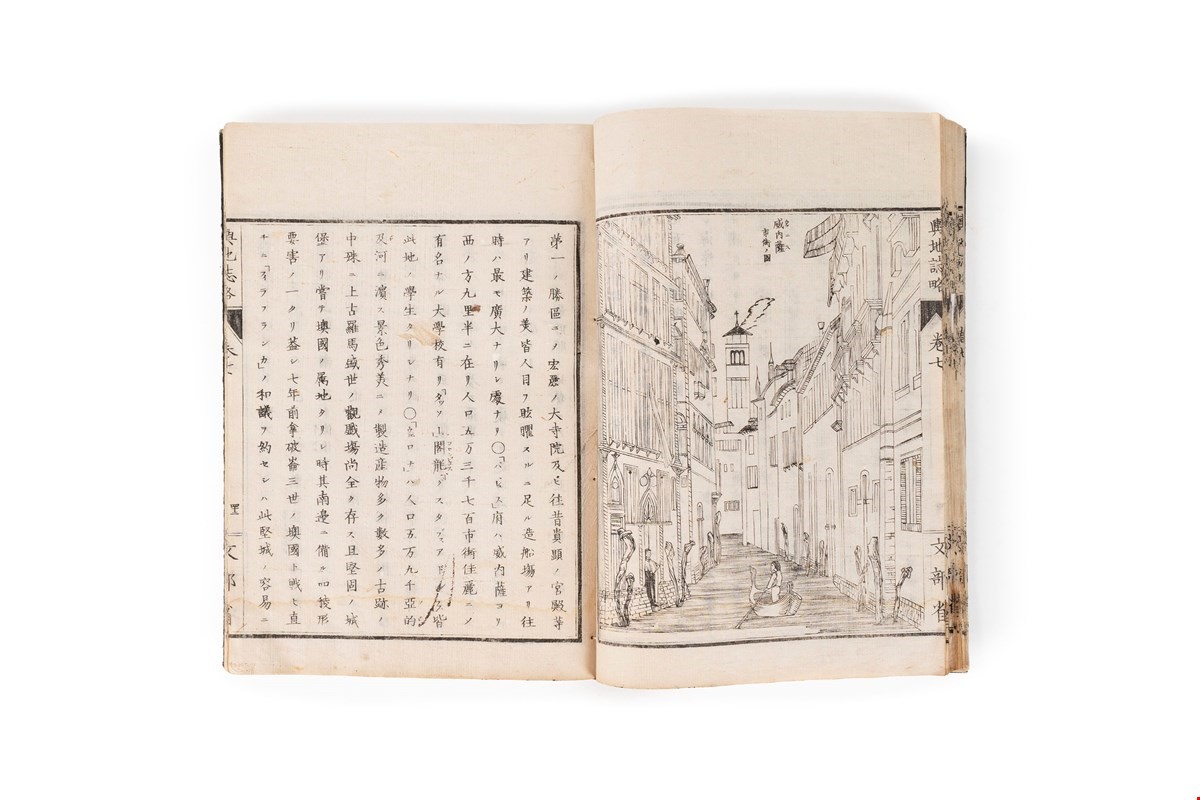 輿地誌略 卷七 文部省
威内薩
市街ノ圖
第一ノ勝區ニノ宏麗ノ大寺院及ヒ往昔貴顯ノ宮殿等
アリ建築ノ美皆人目ヲ眩曜スルニ足ル造船場アリ往
時ハ最モ廣大ナリシ處ナリ〇府ハ威内薩ヨリ
西ノ方九里半ニ在リ人口五万三千七百市街佳麗ニノ
有名ナル大學校有リ「タッソー」閣龍皆
此地ノ學生タリシナリ〇「ヱロナ」ハ人口五万九千亞的
及河ニ濱ス景色秀美ニノ製造産物多ク數多ノ古跡ノ
中殊ニ上古羅馬盛世ノ觀戯場尚全ク存ス且堅固ノ城
堡アリ嘗テ澳國ノ属地タリシ時其南邊ニ備ル四稜形
要害ノ一タリ蓋シ七年前拿破崙三世ノ澳國ト戰ヒ直
チニ「ヰラフランカ」ノ和議ヲ約セシハ此堅城ノ容易ニ
輿地誌略 卷七 文部省